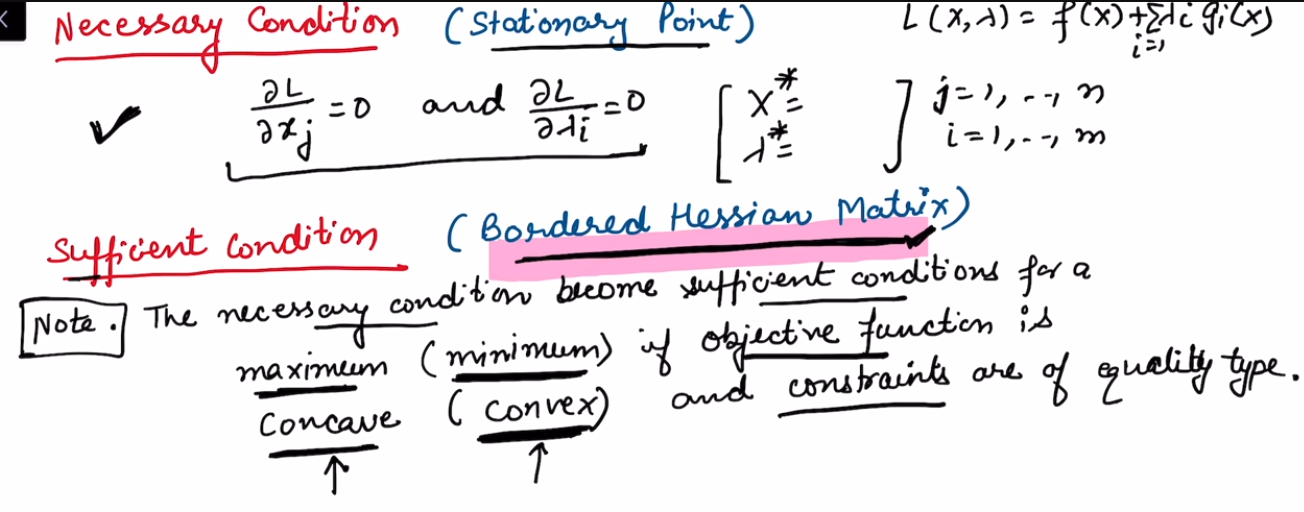 Necessary Condition (Stationary Point) L(X,λ) = f(X) + Σ λi gi(X)
i=1
✓ ∂L/∂xj = 0 and ∂L/∂λi = 0 [ X* = λ* = ] j=1, . . , n
i=1, . . , m
Sufficient Condition (Bordered Hessian Matrix)
Note. The necessary condition become sufficient conditions for a
maximum (minimum) if objective function is
concave (convex) and constraints are of equality type.